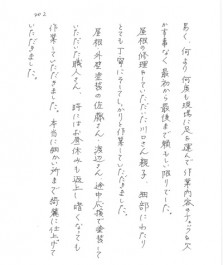 No2
易く、何より何度も現場に足を運んで作業内容のチェックを欠
かす事なく最初から最後まで頼もしい限りでした。
屋根の修理をしていただいた川口さん親子 細部にわたり
とても丁寧にそしてしっかりと作業していただきました。
屋根外壁塗装の佐藤さん 渡辺さん 途中応援で塗装して
いただいた職人さん 時にはお昼休みも返上し暗くなっても
作業していただきました。本当に細かい所まで綺麗に仕上げて
いただきました。